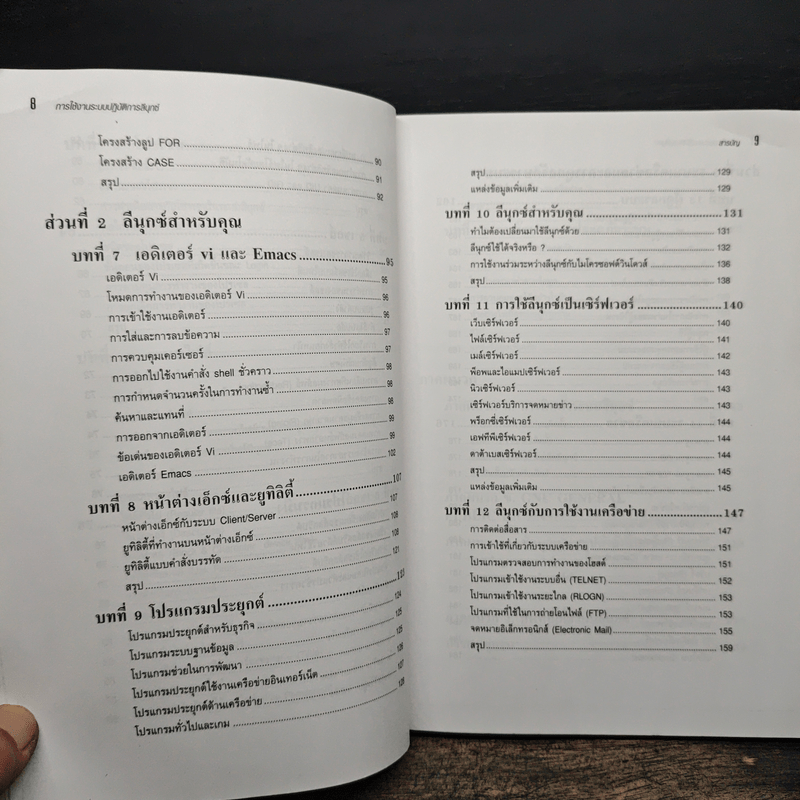 8 การใช้งานระบบปฏิบัติการลีนุกซ์
โครงสร้างลูป FOR ........ 90
โครงสร้าง CASE ........ 91
สรุป ........ 92
ส่วนที่ 2 ลีนุกซ์สำหรับคุณ
บทที่ 7 เอดิเตอร์ vi และ Emacs ........ 95
เอดิเตอร์ Vi ........ 95
โหมดการทำงานของเอดิเตอร์ Vi ........ 96
การเข้าใช้งานเอดิเตอร์ ........ 96
การใส่และการลบข้อความ ........ 97
การควบคุมเคอร์เซอร์ ........ 97
การออกไปใช้งานคำสั่ง shell ชั่วคราว ........ 98
การกำหนดจำนวนครั้งในการทำงานซ้ำ ........ 98
ค้นหาและแทนที่ ........ 98
การออกจากเอดิเตอร์ ........ 99
ข้อเด่นของเอดิเตอร์ Vi ........ 99
เอดิเตอร์ Emacs ........ 102
บทที่ 8 หน้าต่างเอ็กซ์และยูทิลิตี้ ........ 107
หน้าต่างเอ็กซ์กับระบบ Client/Server ........ 107
ยูทิลิตี้ที่ทำงานบนหน้าต่างเอ็กซ์ ........ 108
ยูทิลิตี้แบบคำสั่งบรรทัด ........ 108
สรุป ........ 121
บทที่ 9 โปรแกรมประยุกต์ ........ 123
โปรแกรมประยุกต์สำหรับธุรกิจ ........ 124
โปรแกรมระบบฐานข้อมูล ........ 125
โปรแกรมช่วยในการพัฒนา ........ 125
โปรแกรมประยุกต์ใช้งานเครือข่ายอินเทอร์เน็ต ........ 126
โปรแกรมประยุกต์ด้านเครือข่าย ........ 127
โปรแกรมทั่วไปและเกม ........ 128
สารบัญ 9
สรุป ........ 129
แหล่งข้อมูลเพิ่มเติม ........ 129
บทที่ 10 ลีนุกซ์สำหรับคุณ ........ 131
ทำไมต้องเปลี่ยนมาใช้ลีนุกซ์ด้วย ........ 131
ลีนุกซ์ใช้ได้จริงหรือ ? ........ 132
การใช้งานร่วมระหว่างลีนุกซ์กับไมโครซอฟต์วินโดวส์ ........ 136
สรุป ........ 138
บทที่ 11 การใช้ลีนุกซ์เป็นเซิร์ฟเวอร์ ........ 140
เว็บเซิร์ฟเวอร์ ........ 140
ไฟล์เซิร์ฟเวอร์ ........ 141
เมล์เซิร์ฟเวอร์ ........ 142
พ็อพและไอแมปเซิร์ฟเวอร์ ........ 143
นิวเซิร์ฟเวอร์ ........ 143
เซิร์ฟเวอร์บริการจดหมายข่าว ........ 143
พร็อกซี่เซิร์ฟเวอร์ ........ 144
เอฟทีพีเซิร์ฟเวอร์ ........ 144
ดาต้าเบสเซิร์ฟเวอร์ ........ 144
สรุป ........ 145
แหล่งข้อมูลเพิ่มเติม ........ 145
บทที่ 12 ลีนุกซ์กับการใช้งานเครือข่าย ........ 147
การติดต่อสื่อสาร ........ 147
การเข้าใช้ที่เกี่ยวกับระบบเครือข่าย ........ 151
โปรแกรมตรวจสอบการทำงานของโฮสต์ ........ 151
โปรแกรมเข้าใช้งานระบบอื่น (TELNET) ........ 152
โปรแกรมเข้าใช้งานระยะไกล (RLOGN) ........ 153
โปรแกรมที่ใช้ในการถ่ายโอนไฟล์ (FTP) ........ 153
จดหมายอิเล็กทรอนิกส์ (Electronic Mail) ........ 155
สรุป ........ 159